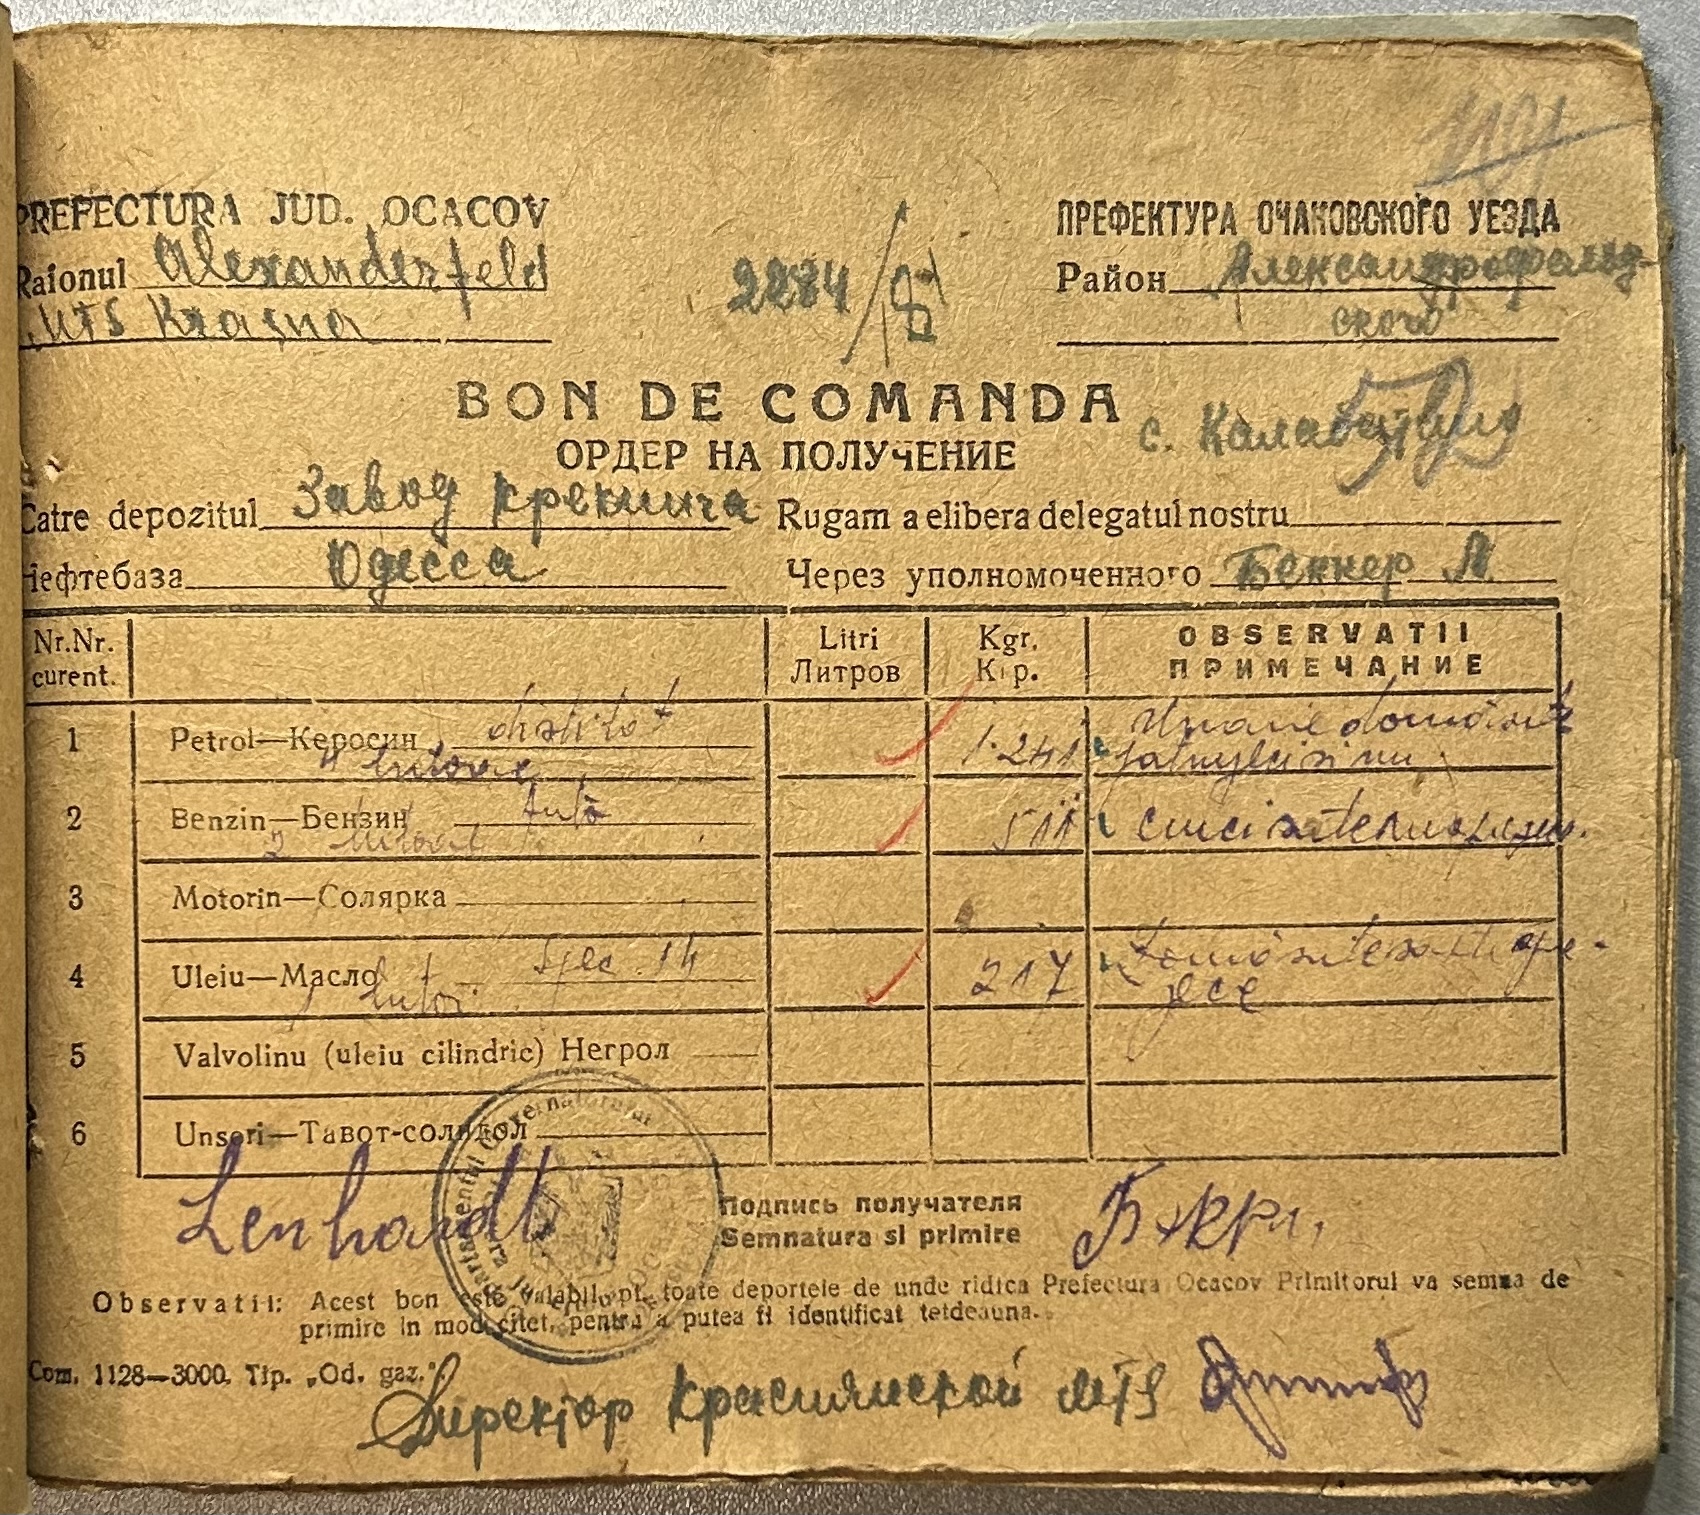 PREFECTURA JUD. OCACOV
Raionul Alexanderfeld
MTS Krasna
2284
ПРЕФЕКТУРА ОЧАКОВСКОГО УЕЗДА
Район Александрфельд-
ского
BON DE COMANDA
ОРДЕР НА ПОЛУЧЕНИЕ
с.
Catre depozitul Завод крекинга
Нефтебаза Одесса
Rugam a elibera delegatul nostru
Через уполномоченного Беккер Л
Nr.Nr. curent. Litri Литров Kgr. Кгр. OBSERVATII ПРИМЕЧАНИЕ
1 Petrol—Керосин distilat 1.241
4 butoae
2 Benzin—Бензин Auto 511
2 butoae
3 Motorin—Солярка
4 Uleiu—Масло Spec. 14 217
1 butoi
5 Valvolinu (uleiu cilindric) Негрол
6 Unsori—Тавот-солидол
Lenhardt
Подпись получателя
Semnatura si primire
Observatii: Acest bon este valabil pt. toate deportele de unde ridica Prefectura Ocacov Primitorul va semna de
primire in mod citet, pentru a putea fi identificat tetdeauna.
Com. 1128—3000. Tip. „Od. gaz."
Директор Краснянской MTS